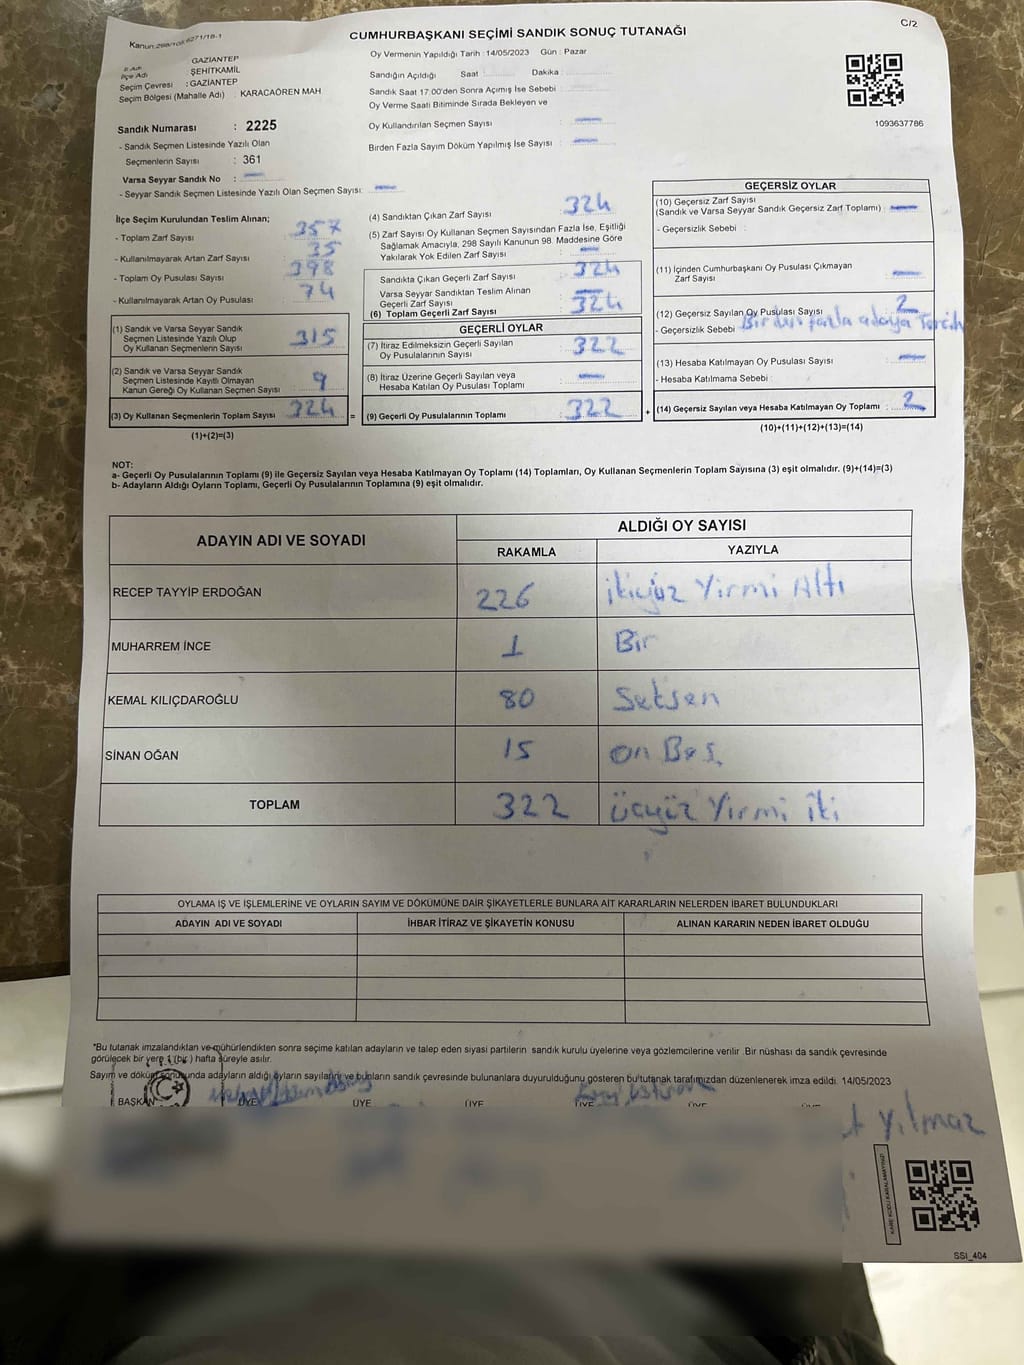 Kanun:298/105,6271/18-1
CUMHURBAŞKANI SEÇİMİ SANDIK SONUÇ TUTANAĞI
C/2
İl Adı GAZİANTEP
İlçe Adı ŞEHİTKAMİL
Seçim Çevresi : GAZİANTEP
Seçim Bölgesi (Mahalle Adı) : KARACAÖREN MAH
Sandık Numarası : 2225
- Sandık Seçmen Listesinde Yazılı Olan
Seçmenlerin Sayısı : 361
Varsa Seyyar Sandık No :
- Seyyar Sandık Seçmen Listesinde Yazılı Olan Seçmen Sayısı:
Oy Vermenin Yapıldığı Tarih : 14/05/2023 Gün : Pazar
Sandığın Açıldığı Saat Dakika :
Sandık Saat 17:00'den Sonra Açımış İse Sebebi :
Oy Verme Saati Bitiminde Sırada Bekleyen ve
Oy Kullandırılan Seçmen Sayısı :
Birden Fazla Sayım Döküm Yapılmış İse Sayısı :
1093637786
İlçe Seçim Kurulundan Teslim Alınan;
- Toplam Zarf Sayısı : 357
- Kullanılmayarak Artan Zarf Sayısı : 35
- Toplam Oy Pusulası Sayısı : 398
- Kullanılmayarak Artan Oy Pusulası : 74
(1) Sandık ve Varsa Seyyar Sandık
Seçmen Listesinde Yazılı Olup
Oy Kullanan Seçmenlerin Sayısı : 315
(2) Sandık ve Varsa Seyyar Sandık
Seçmen Listesinde Kayıtlı Olmayan
Kanun Gereği Oy Kullanan Seçmen Sayısı : 9
(3) Oy Kullanan Seçmenlerin Toplam Sayısı : 324 =
(1)+(2)=(3)
(4) Sandıktan Çıkan Zarf Sayısı : 324
(5) Zarf Sayısı Oy Kullanan Seçmen Sayısından Fazla İse, Eşitliği
Sağlamak Amacıyla, 298 Sayılı Kanunun 98. Maddesine Göre
Yakılarak Yok Edilen Zarf Sayısı :
Sandıkta Çıkan Geçerli Zarf Sayısı : 324
Varsa Seyyar Sandıktan Teslim Alınan
Geçerli Zarf Sayısı :
(6) Toplam Geçerli Zarf Sayısı : 324
GEÇERLİ OYLAR
(7) İtiraz Edilmeksizin Geçerli Sayılan
Oy Pusulalarının Sayısı : 322
(8) İtiraz Üzerine Geçerli Sayılan veya
Hesaba Katılan Oy Pusulaları Toplamı :
(9) Geçerli Oy Pusulalarının Toplamı : 322 +
GEÇERSİZ OYLAR
(10) Geçersiz Zarf Sayısı
(Sandık ve Varsa Seyyar Sandık Geçersiz Zarf Toplamı) :
- Geçersizlik Sebebi :
(11) İçinden Cumhurbaşkanı Oy Pusulası Çıkmayan
Zarf Sayısı :
(12) Geçersiz Sayılan Oy Pusulası Sayısı : 2
- Geçersizlik Sebebi : Birden fazla adaya Tercih
(13) Hesaba Katılmayan Oy Pusulası Sayısı :
- Hesaba Katılmama Sebebi :
(14) Geçersiz Sayılan veya Hesaba Katılmayan Oy Toplamı : 2
(10)+(11)+(12)+(13)=(14)
NOT:
a- Geçerli Oy Pusulalarının Toplamı (9) ile Geçersiz Sayılan veya Hesaba Katılmayan Oy Toplamı (14) Toplamları, Oy Kullanan Seçmenlerin Toplam Sayısına (3) eşit olmalıdır. (9)+(14)=(3)
b- Adayların Aldığı Oyların Toplamı, Geçerli Oy Pusulalarının Toplamına (9) eşit olmalıdır.
ADAYIN ADI VE SOYADI ALDIĞI OY SAYISI
RAKAMLA YAZIYLA
RECEP TAYYİP ERDOĞAN 226 ikiyüz Yirmi Altı
MUHARREM İNCE 1 Bir
KEMAL KILIÇDAROĞLU 80 Seksen
SİNAN OĞAN 15 on Beş
TOPLAM 322 Üçyüz Yirmi İki
OYLAMA İŞ VE İŞLEMLERİNE VE OYLARIN SAYIM VE DÖKÜMÜNE DAİR ŞİKAYETLERLE BUNLARA AİT KARARLARIN NELERDEN İBARET BULUNDUKLARI
ADAYIN ADI VE SOYADI İHBAR İTİRAZ VE ŞİKAYETİN KONUSU ALINAN KARARIN NEDEN İBARET OLDUĞU
*Bu tutanak imzalandıktan ve mühürlendikten sonra seçime katılan adayların ve talep eden siyasi partilerin sandık kurulu üyelerine veya gözlemcilerine verilir .Bir nüshası da sandık çevresinde
görülecek bir yere 1 (bir ) hafta süreyle asılır.
Sayım ve döküm sonucunda adayların aldığı oyların sayılarını ve bunların sandık çevresinde bulunanlara duyurulduğunu gösteren bu tutanak tarafımızdan düzenlenerek imza edildi. 14/05/2023
BAŞKAN ÜYE ÜYE ÜYE ÜYE ÜYE ÜYE
Yılmaz
KARE KODU KARALAMAYINIZ!
SSI_404